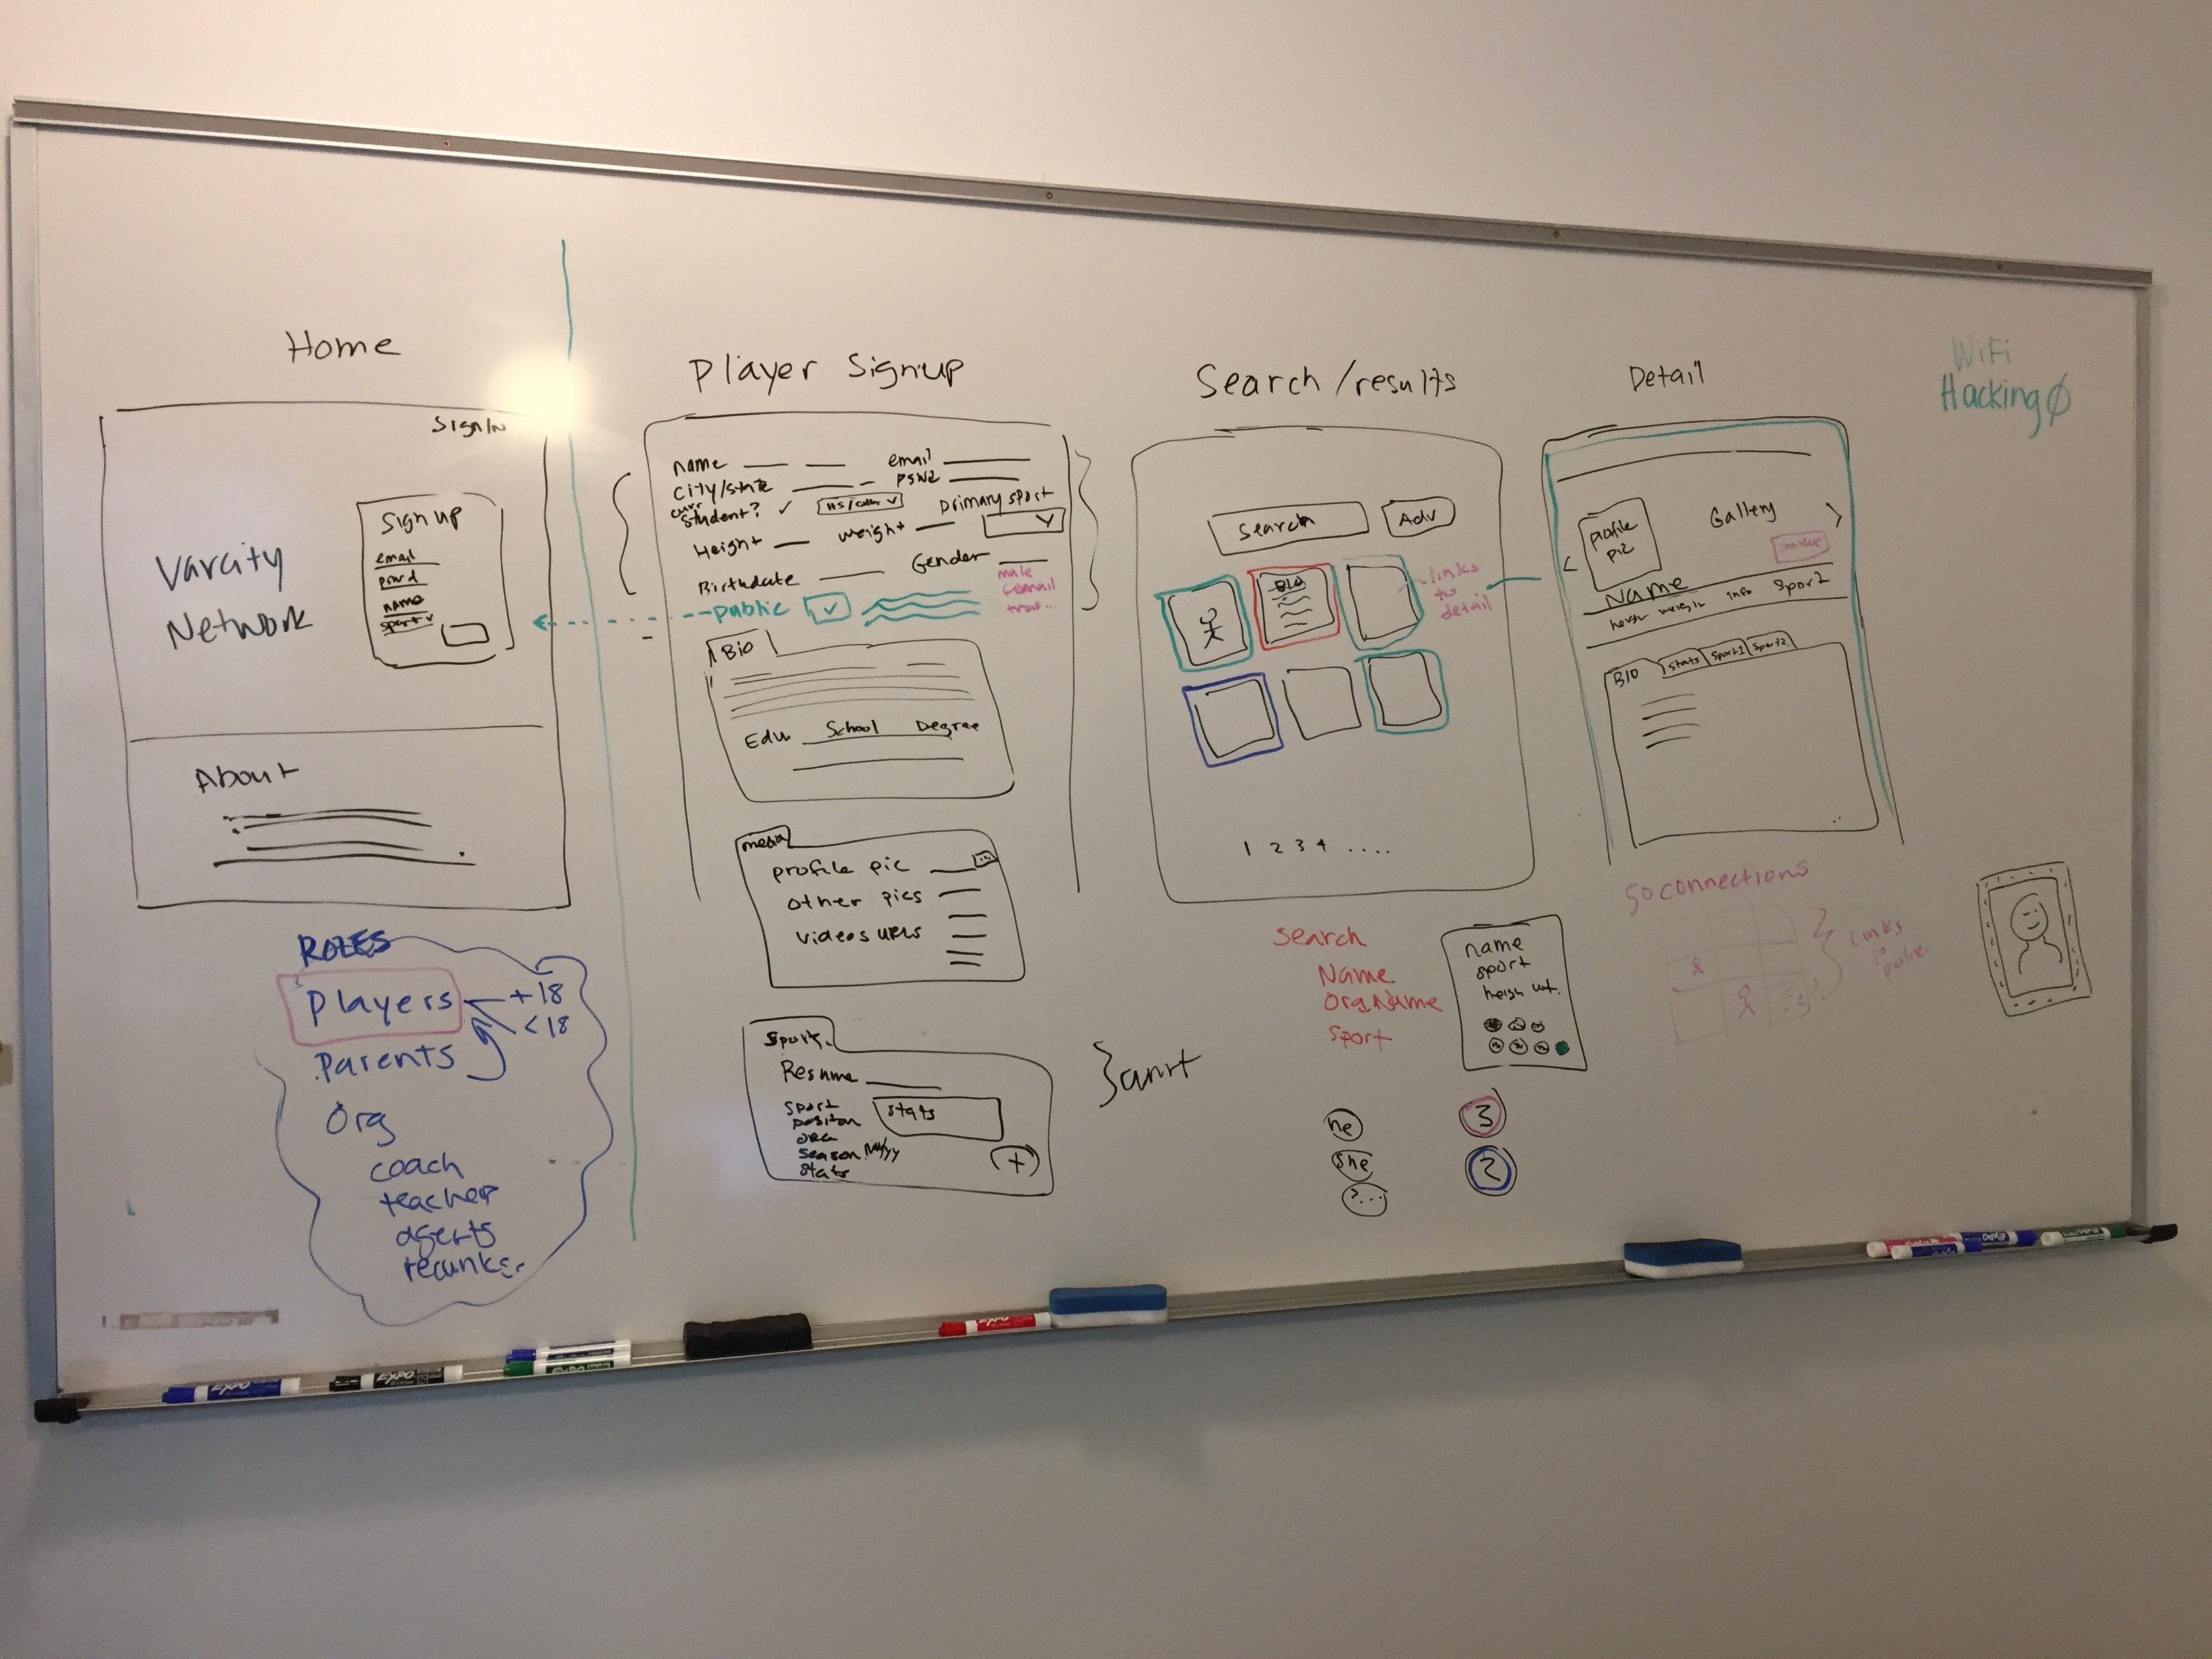 Home
Sign In
Varcity
Network
Sign up
email
pswd
name
sport
About
ROLES
Players
+18
<18
Parents
Org
coach
teacher
agents
Player Signup
name
email
City/state
curr
Student?
HS/
primary sport
Height
weight
Birthdate
Gender
male
public
Bio
Edu School Degree
media
profile pic
other pics
videos URLs
Sport
Resume
sport
position
org
season
stats
stats
+
Search/results
Search
Adv
BIO
links
to
detail
1 2 3 4 ....
Search
Name
Org Name
Sport
name
sport
he
she
?...
3
2
Detail
profile
pic
Gallery
Name
weight info Sport
BIO
Stats
Sport1
Sport2
50 connections
Links
to
WiFi
HackingØ